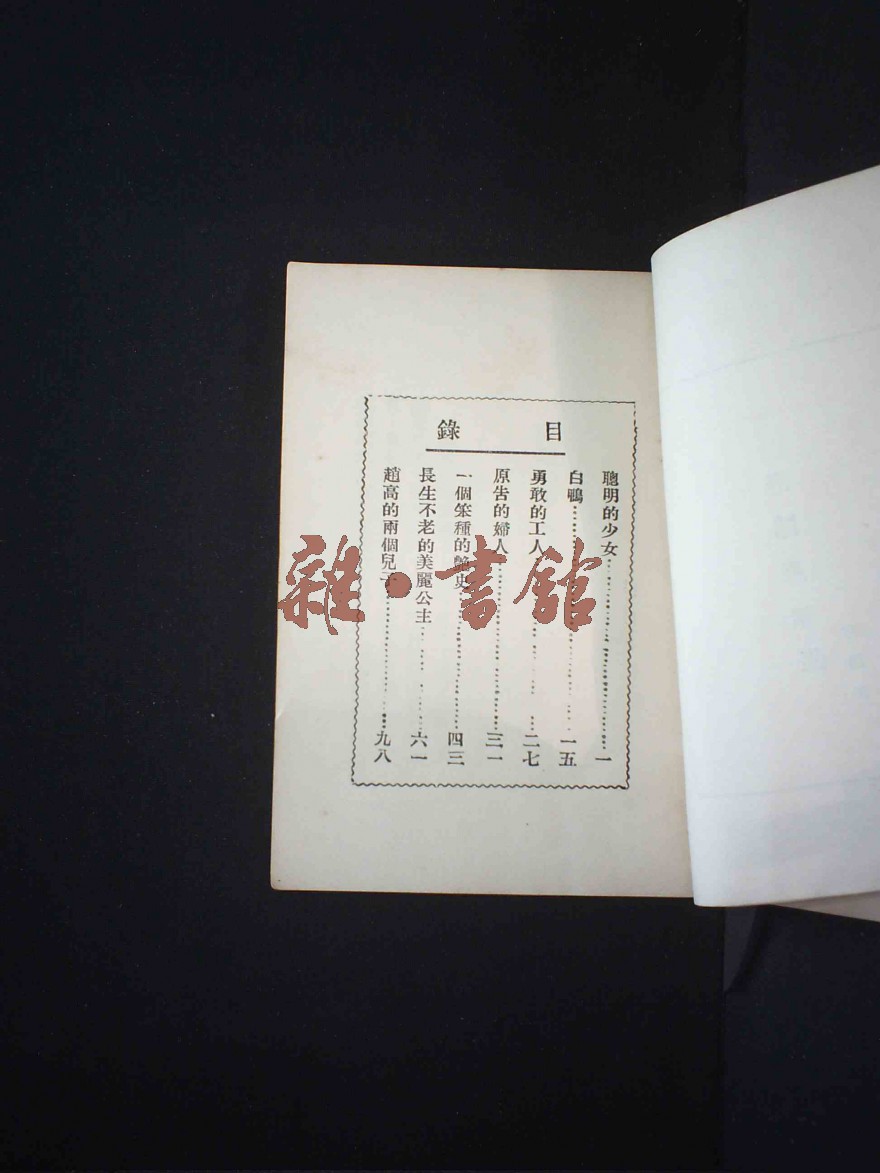 目錄
聰明的少女 一
白鴨 一五
勇敢的工人 二七
原告的婦人 三一
一個笨種的歷史 四三
長生不老的美麗公主 六一
趙高的兩個兒子 九八
雜·書館